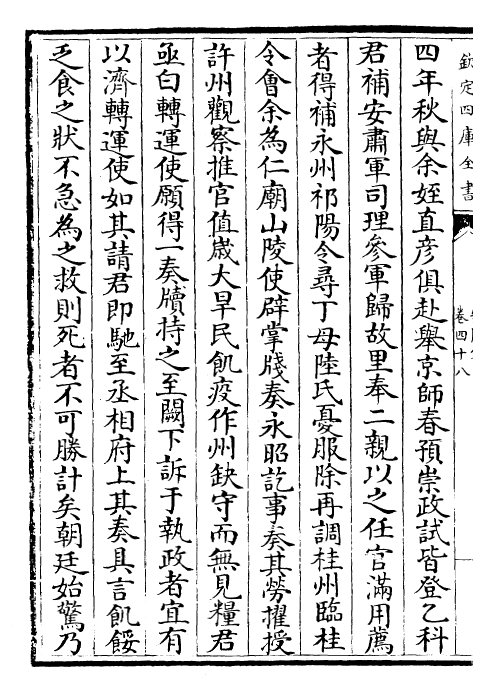 欽定四庫全書
卷四十八
四年秋與余姪直彥俱赴舉京師春預崇政試皆登乙科
君補安肅軍司理參軍歸故里奉二親以之任官滿用薦
者得補永州祁陽令尋丁母陸氏憂服除再調桂州臨桂
令會余為仁廟山陵使辟掌牋奏永昭訖事奏其勞擢授
許州觀察推官值歲大旱民飢疫作州缺守而無見糧君
亟白轉運使願得一奏牘持之至闕下訴于執政者宜有
以濟轉運使如其請君即馳至丞相府上其奏具言飢餒
乏食之狀不急為之救則死者不可勝計矣朝廷始驚乃